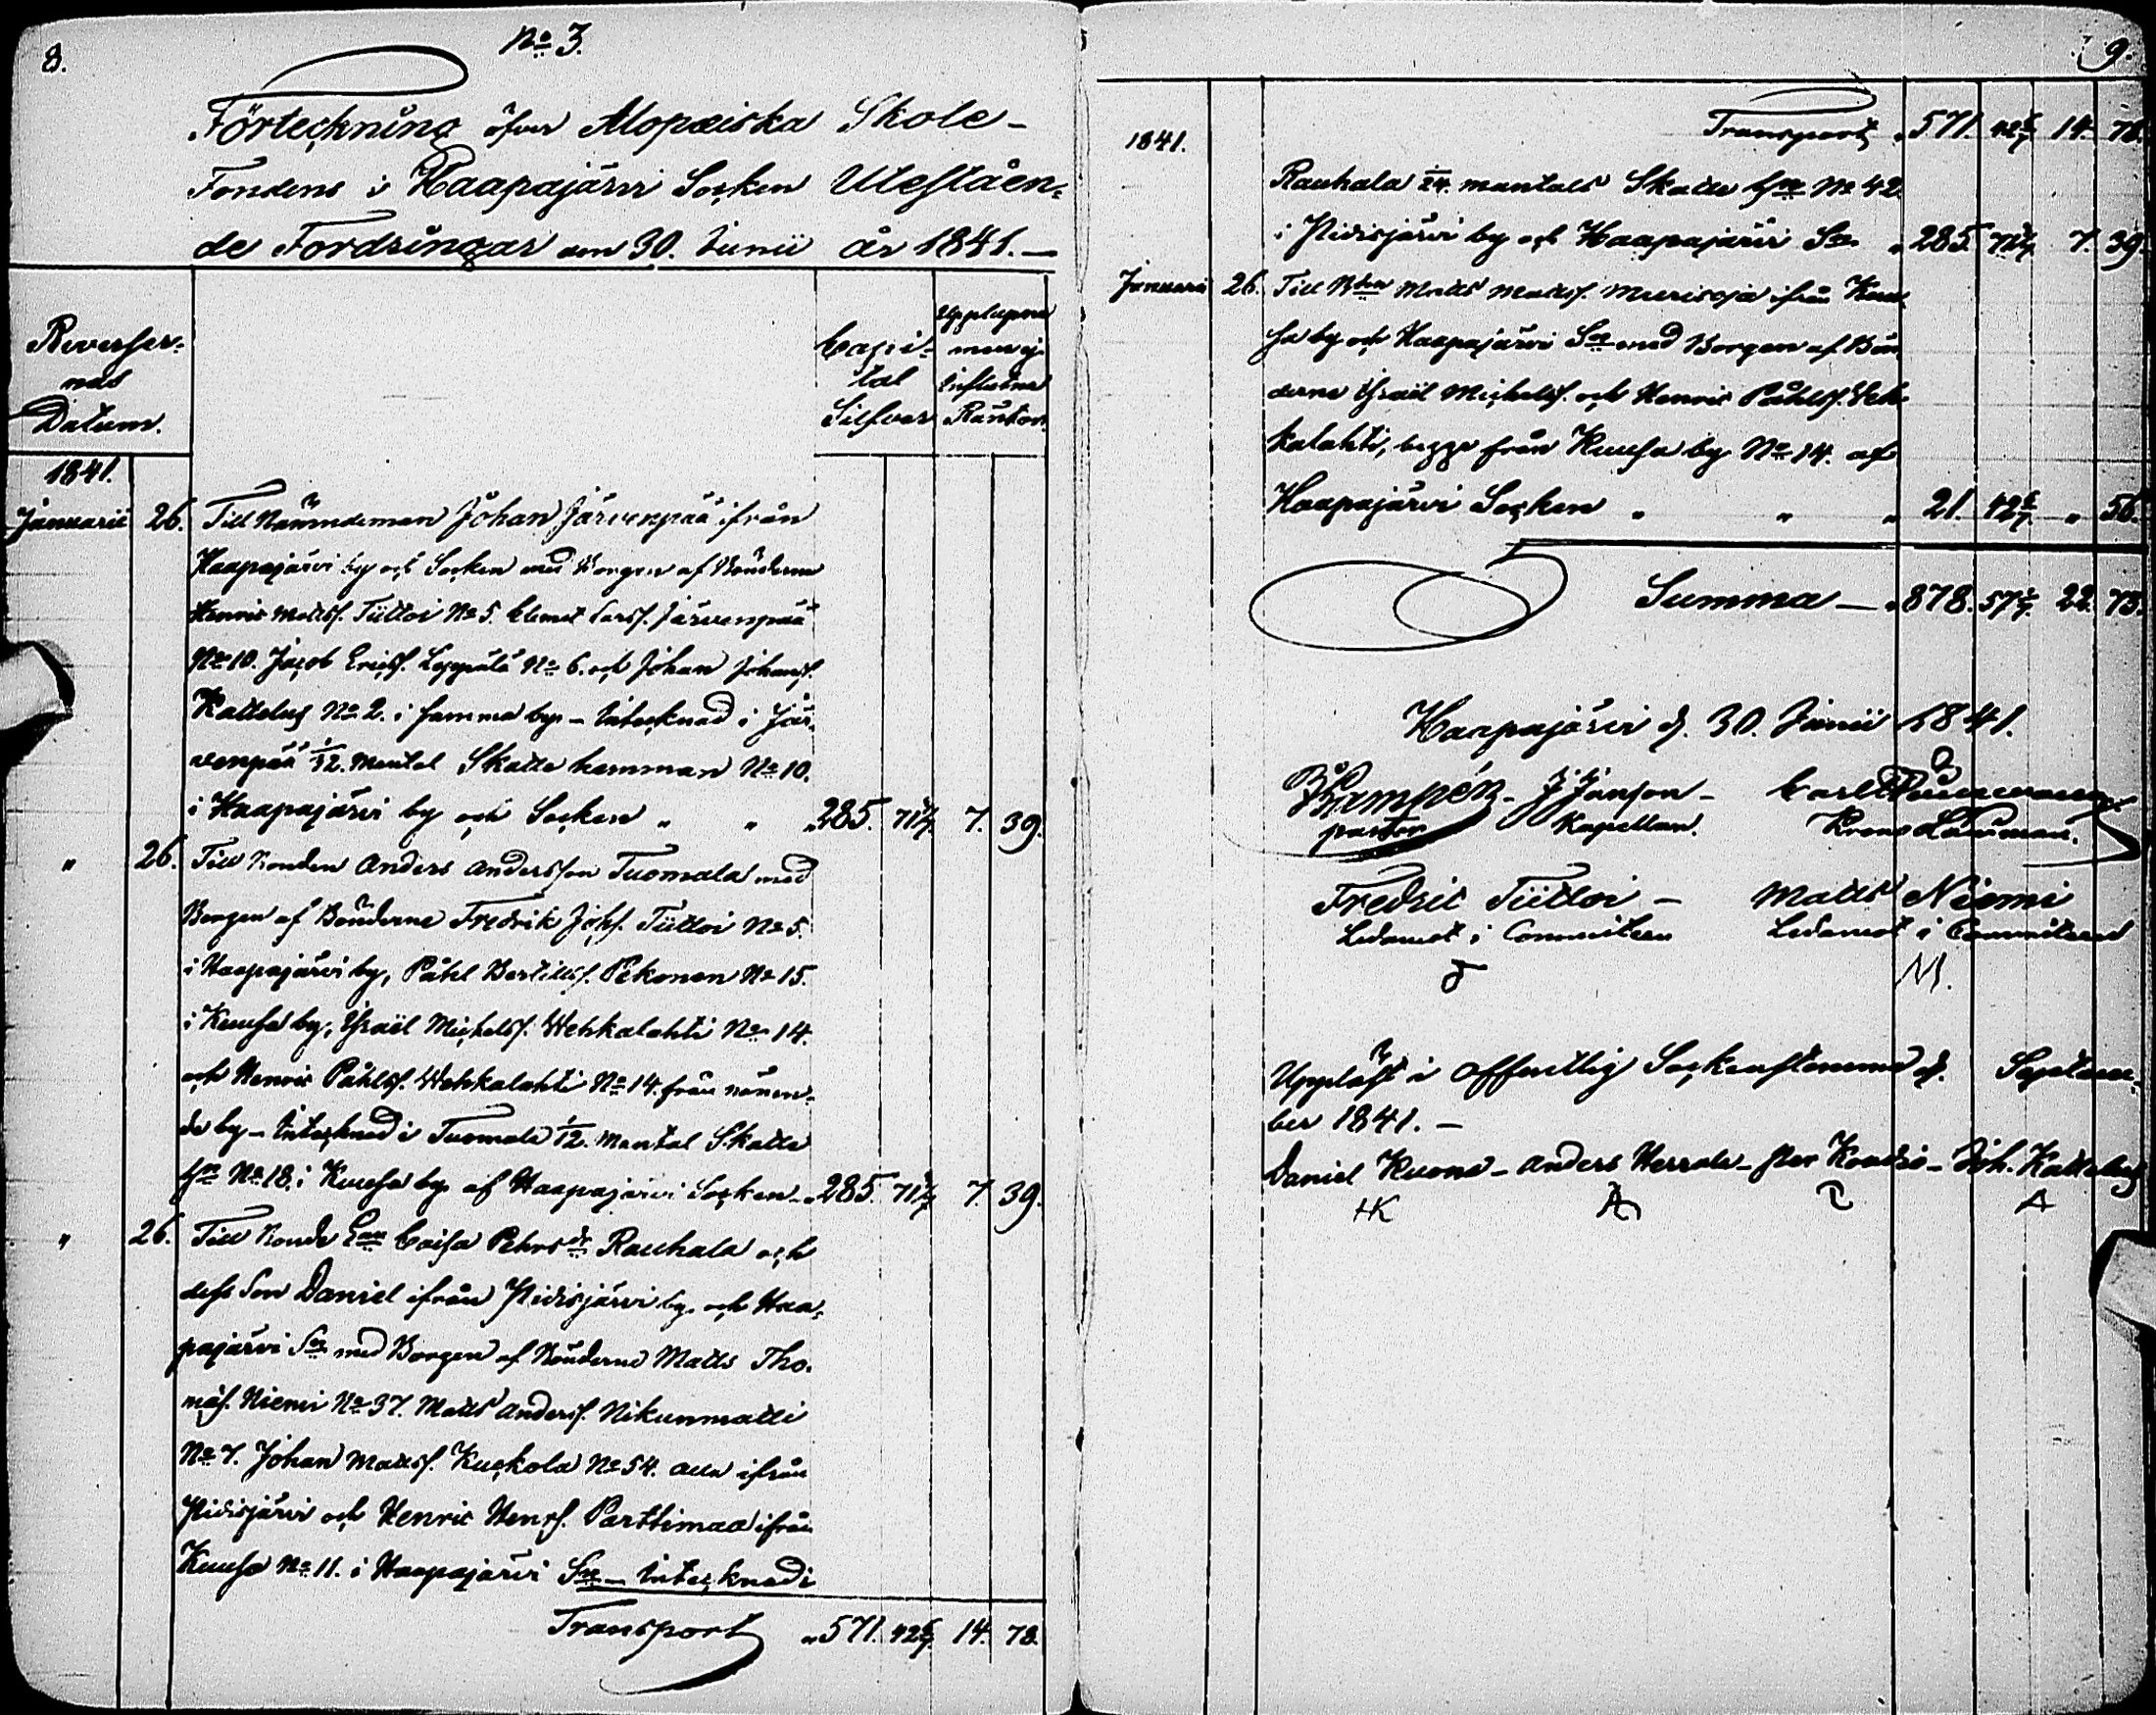 8.
No 3.
Förteckning öfver Alopæiska Skole-
Fondens i Haapajärvi Socken Uteståen-
de Fordringar den 30. Junii år 1841. —
Reverser-
nas
Datum.
Capi-
tal
Silfver
Upplupna
men ej
influtna
Räntor.
1841.
Januarii 26. Till Nämndeman Johan Järvenpää ifrån
Haapajärvi by och Socken med Borgen af Bönderne
Henric Mattsf. Tiittoi No 5. Clemet Larsf. Järvenpää
No 10. Jacob Ericsf. Leppälä No 6. och Johan Johansf.
Kattelus No 2. i samma by. — Intecknad i Jär-
venpää 1/12. Mantal Skatte hemman No 10.
i Haapajärvi by och Socken " " " 285. 71 3/7. 7. 39.
" 26. Till Bonden Anders Andersson Tuomala med
Borgen af Bönderne Fredrik Johsf. Tiittoi No 5.
i Haapajärvi by, Påhl Bertillsf. Pekonen No 15.
i Kuusa by, Israël Michelsf. Wehkalahti No 14.
och Henric Påhlsf. Wehkalahti No 14. från nämn-
de by — Intecknad i Tuomala 1/12. Mantal Skatte
hmn No 18. i Kuusa by af Haapajärvi Socken — " 285. 71 3/7. 7. 39.
" 26. Till Bonde Enn Caisa Pehrsdr Rauhala och
dess Son Daniel ifrån Pidisjärvi by och Haa-
pajärvi Sn med Borgen af Bönderne Matts Tho-
mäsf. Niemi No 37. Matts Andersf. Nikunmatti
No 7. Johan Mattsf. Kuckola No 54. alla ifrån
Pidisjärvi och Henric Henrsf. Parttimaa ifrån
Kuusa No 11. i Haapajärvi Sn — Intecknad i
Transport " 571. 42 6/7. 14. 78.
9.
1841. Transport " 571. 42 6/7. 14. 78.
Rauhala 1/24. mantals Skatte hmn No 42.
i Pidisjärvi by och Haapajärvi Sn " 285. 71 3/7. 7. 39.
Januarii 26. Till Bdn Matts Mattsf. Murisoja ifrån Kuu-
sa by och Haapajärvi Sn med Borgen af Bön-
derne Israël Michelsf. och Henric Påhlsf. Weh-
kalahti, begge från Kuusa by No 14. af
Haapajärvi Socken " " " 21. 42 6/7. " 56.
Summa — " 878. 57 1/7. 22. 73.
Haapajärvi d. 30. Junii 1841.
Frampén — J Janson —
pastor Kapellan. Krono Länsman.
Fredric Tiittoi — Matts Niemi
Ledamot i Committeen Ledamot i Committeen
M.
Uppläst i offentlig Sockenstemma d. Septem-
ber 1841. —
Daniel Kuona — Anders Herrala — Joh. Kattelus
HK A A